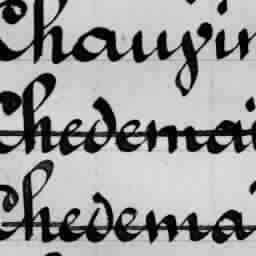 Chauvin
Chedemai
Chedema